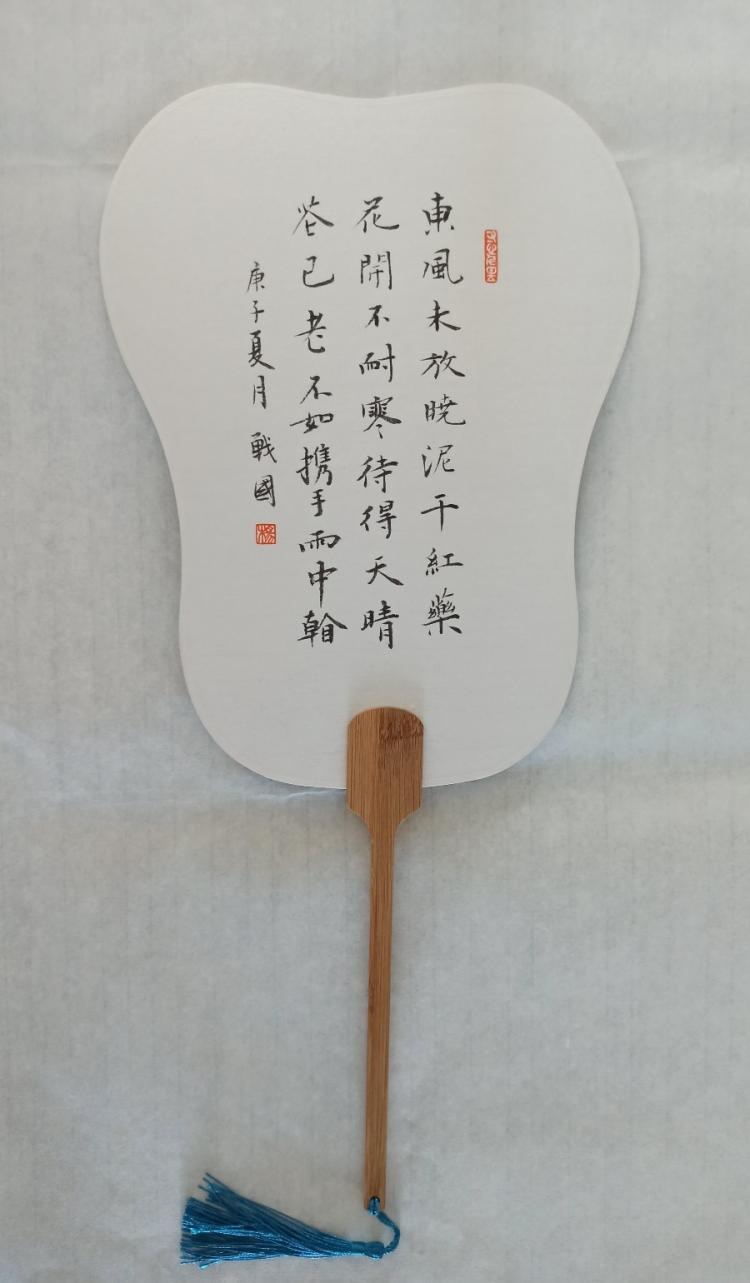 東風未放曉泥干紅藥
花開不耐寒待得天晴
花已老不如携手雨中看
庚子夏月 戰國
楊